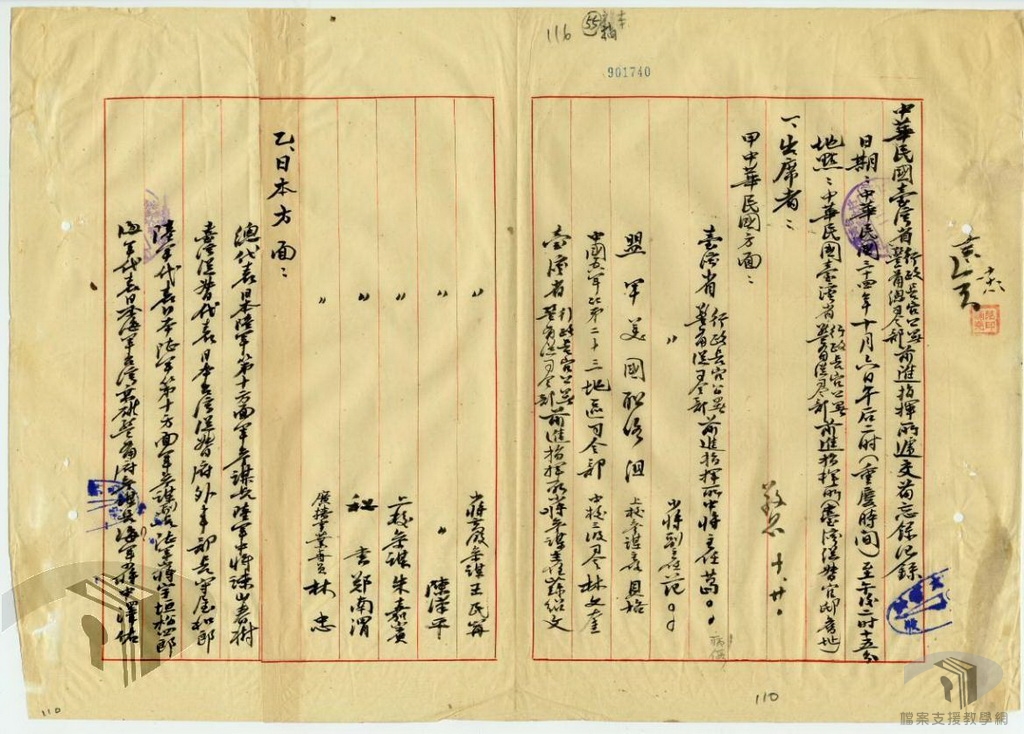 116
55
901740
中華民國臺灣省行政長官公署警備總司令部前進指揮所遞交備忘錄記錄
日期：中華民國三十四年十月六日午后二時(重慶時間)至午后二時十五分
地點：中華民國臺灣省行政長官公署警備總司令部前進指揮所(臺灣總督官邸舊址)
一、出席者：
甲中華民國方面：
臺灣省行政長官公署警備總司令部前進指揮所中將主任葛。。
〃 少將副主任范。。
盟軍美國聯絡組 上校參謀長貝格
中國空軍第二十三地區司令部 中校司令林文奎
臺灣省行政長官公署警備總司令部前進指揮所少將參謀主任蘇紹文
〃 少將高級參謀王民寧
〃 〃 陳漢平
〃 上校參謀朱嘉賓
〃 秘書鄭南渭
〃 廣播事業專員林忠
乙、日本方面：
總代表日本陸軍第十方面軍參謀長陸軍中將諫山春樹
臺灣總督代表日本臺灣總督府外事部長守屋和郎
陸軍代表日本陸軍第十方面軍參謀副長陸軍少將宇垣松四郎
海軍代表日本海軍臺灣高雄警備府參謀長海軍少將中澤佑
110
110
檔案支援教學網